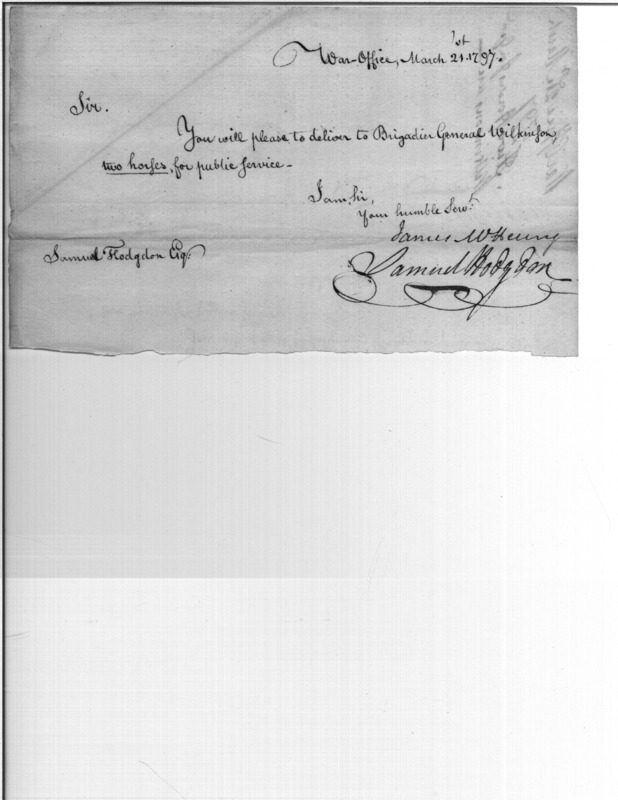 War-Office, March 21st 1797.
Sir.
You will please to deliver to Brigadier General Wilkinson,
two horses, for public service-
I am, Sir,
Your humble Servt.
James McHenry
Samuel Hodgdon Esqr.
Samuel Hodgdon